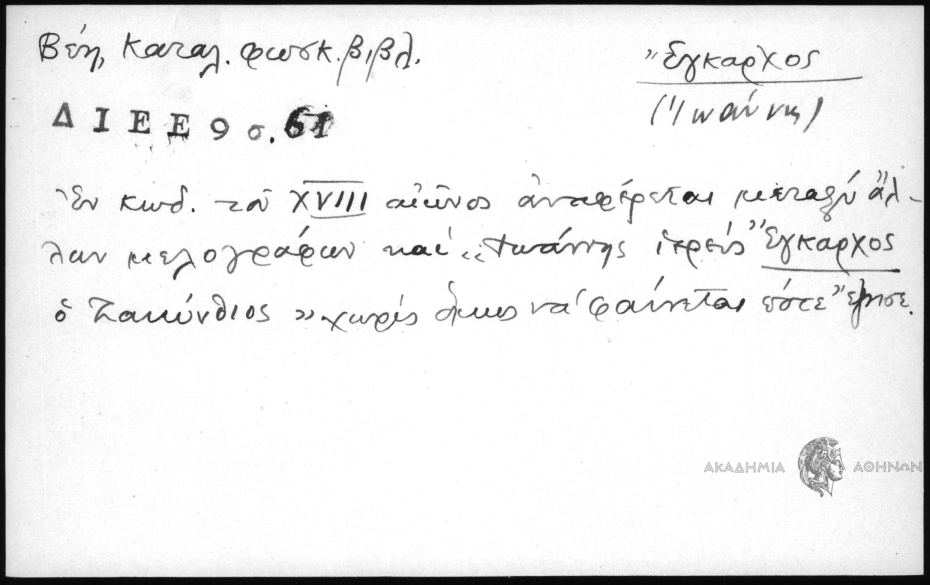 Βέη, Καταλ. φωσκ. βιβλ.
Ἔγκαρχος
(Ἰωάννης)
ΔΙΕΕ 9 σ. 61
Ἐν κωδ. τοῦ XVIII αἰῶνος ἀναφέρεται μεταξὺ ἄλ-
λων μελογράφων καὶ "Ἰωάννης ἱερεὺς Ἔγκαρχος
ὁ Ζακύνθιος" χωρὶς ὅμως νὰ φαίνεται πότε ἔζησε.
ΑΚΑΔΗΜΙΑ ΑΘΗΝΩΝ